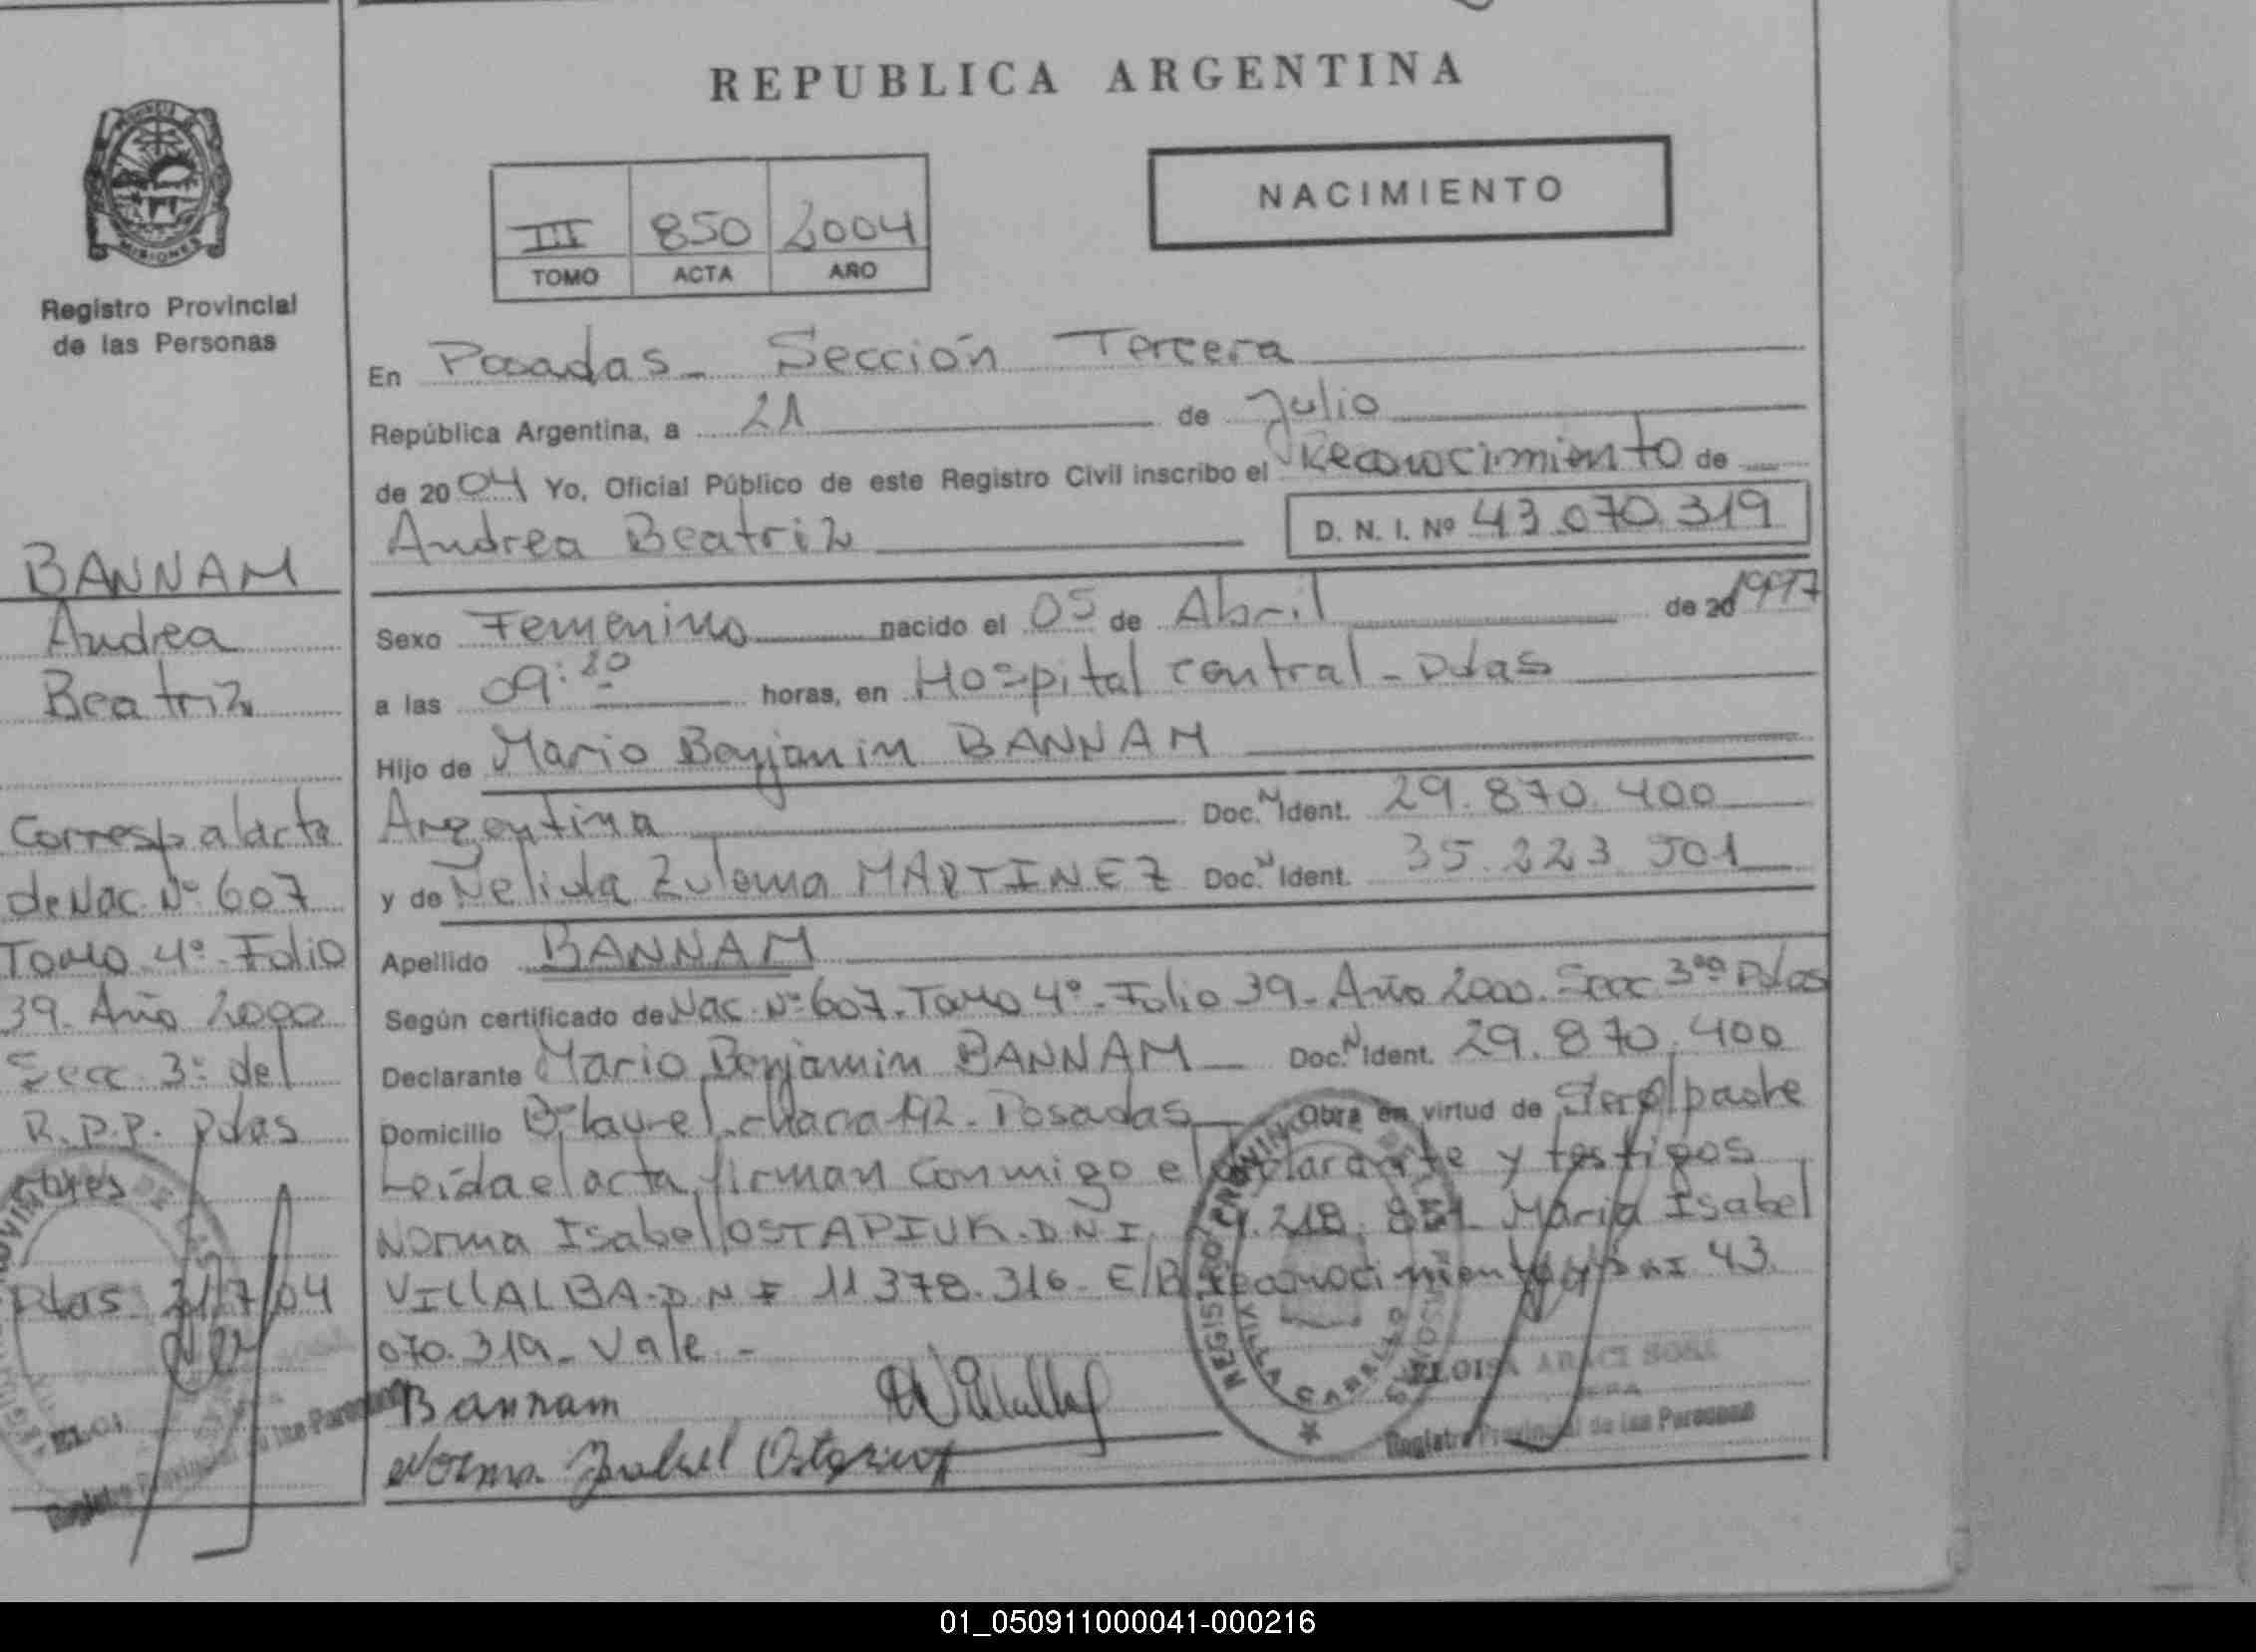 REPUBLICA ARGENTINA
NACIMIENTO
III 850 2004
TOMO ACTA AÑO
PROVINCIA
MISIONES
Registro Provincial
de las Personas
BANNAM
Andrea
Beatriz
Corresp al acta
de Nac. Nº 607
Tomo 4º Folio
39. Año 2000
Secc 3ª del
R.P.P. Pdas
Pdas 21/7/04
En Posadas - Sección Tercera
República Argentina, a 21 de Julio
de 2004 Yo, Oficial Público de este Registro Civil inscribo el Reconocimiento de
Andrea Beatriz D. N. I. Nº 43.070.319
Sexo Femenino nacido el 05 de Abril de 20 1997
a las 09:20 horas, en Hospital central - Pdas
Hijo de Mario Benjamin BANNAM
Argentina Doc. N Ident. 29.870.400
y de Nelida Zulema MARTINEZ Doc. N Ident. 35.223.501
Apellido BANNAM
Según certificado de Nac. Nº 607. Tomo 4º - Folio 39 - Año 2000. Secc 3ª Pdas
Declarante Mario Benjamin BANNAM Doc. N Ident. 29.870.400
Domicilio Bº laurel. chacra 192 - Posadas Obra en virtud de
Leída el acta, firman conmigo el declarante y testigos
Norma Isabel OSTAPIUK. D.N.I. 218. Maria Isabel
VILLALBA - D.N.I 11.378.316 - E/B reconocimiento y DNI 43.
070.319 - Vale -
Bannam
Norma Isabel
ELOISA ARACI SOSA
Registro Provincial de las Personas
REGISTRO PROVINCIAL DE LAS PERSONAS
VILLA CABELLO
Registro Provincial de las Personas
01_050911000041-000216